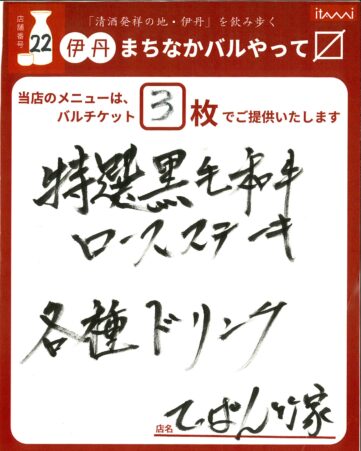 「清酒発祥の地・伊丹」を飲み歩く
itami
店舗番号
22
伊丹まちなかバルやって〼
当店のメニューは、
バルチケット 3 枚でご提供いたします
特選黒毛和牛
ロースステーキ
各種ドリンク
店名 てっぱん竹家